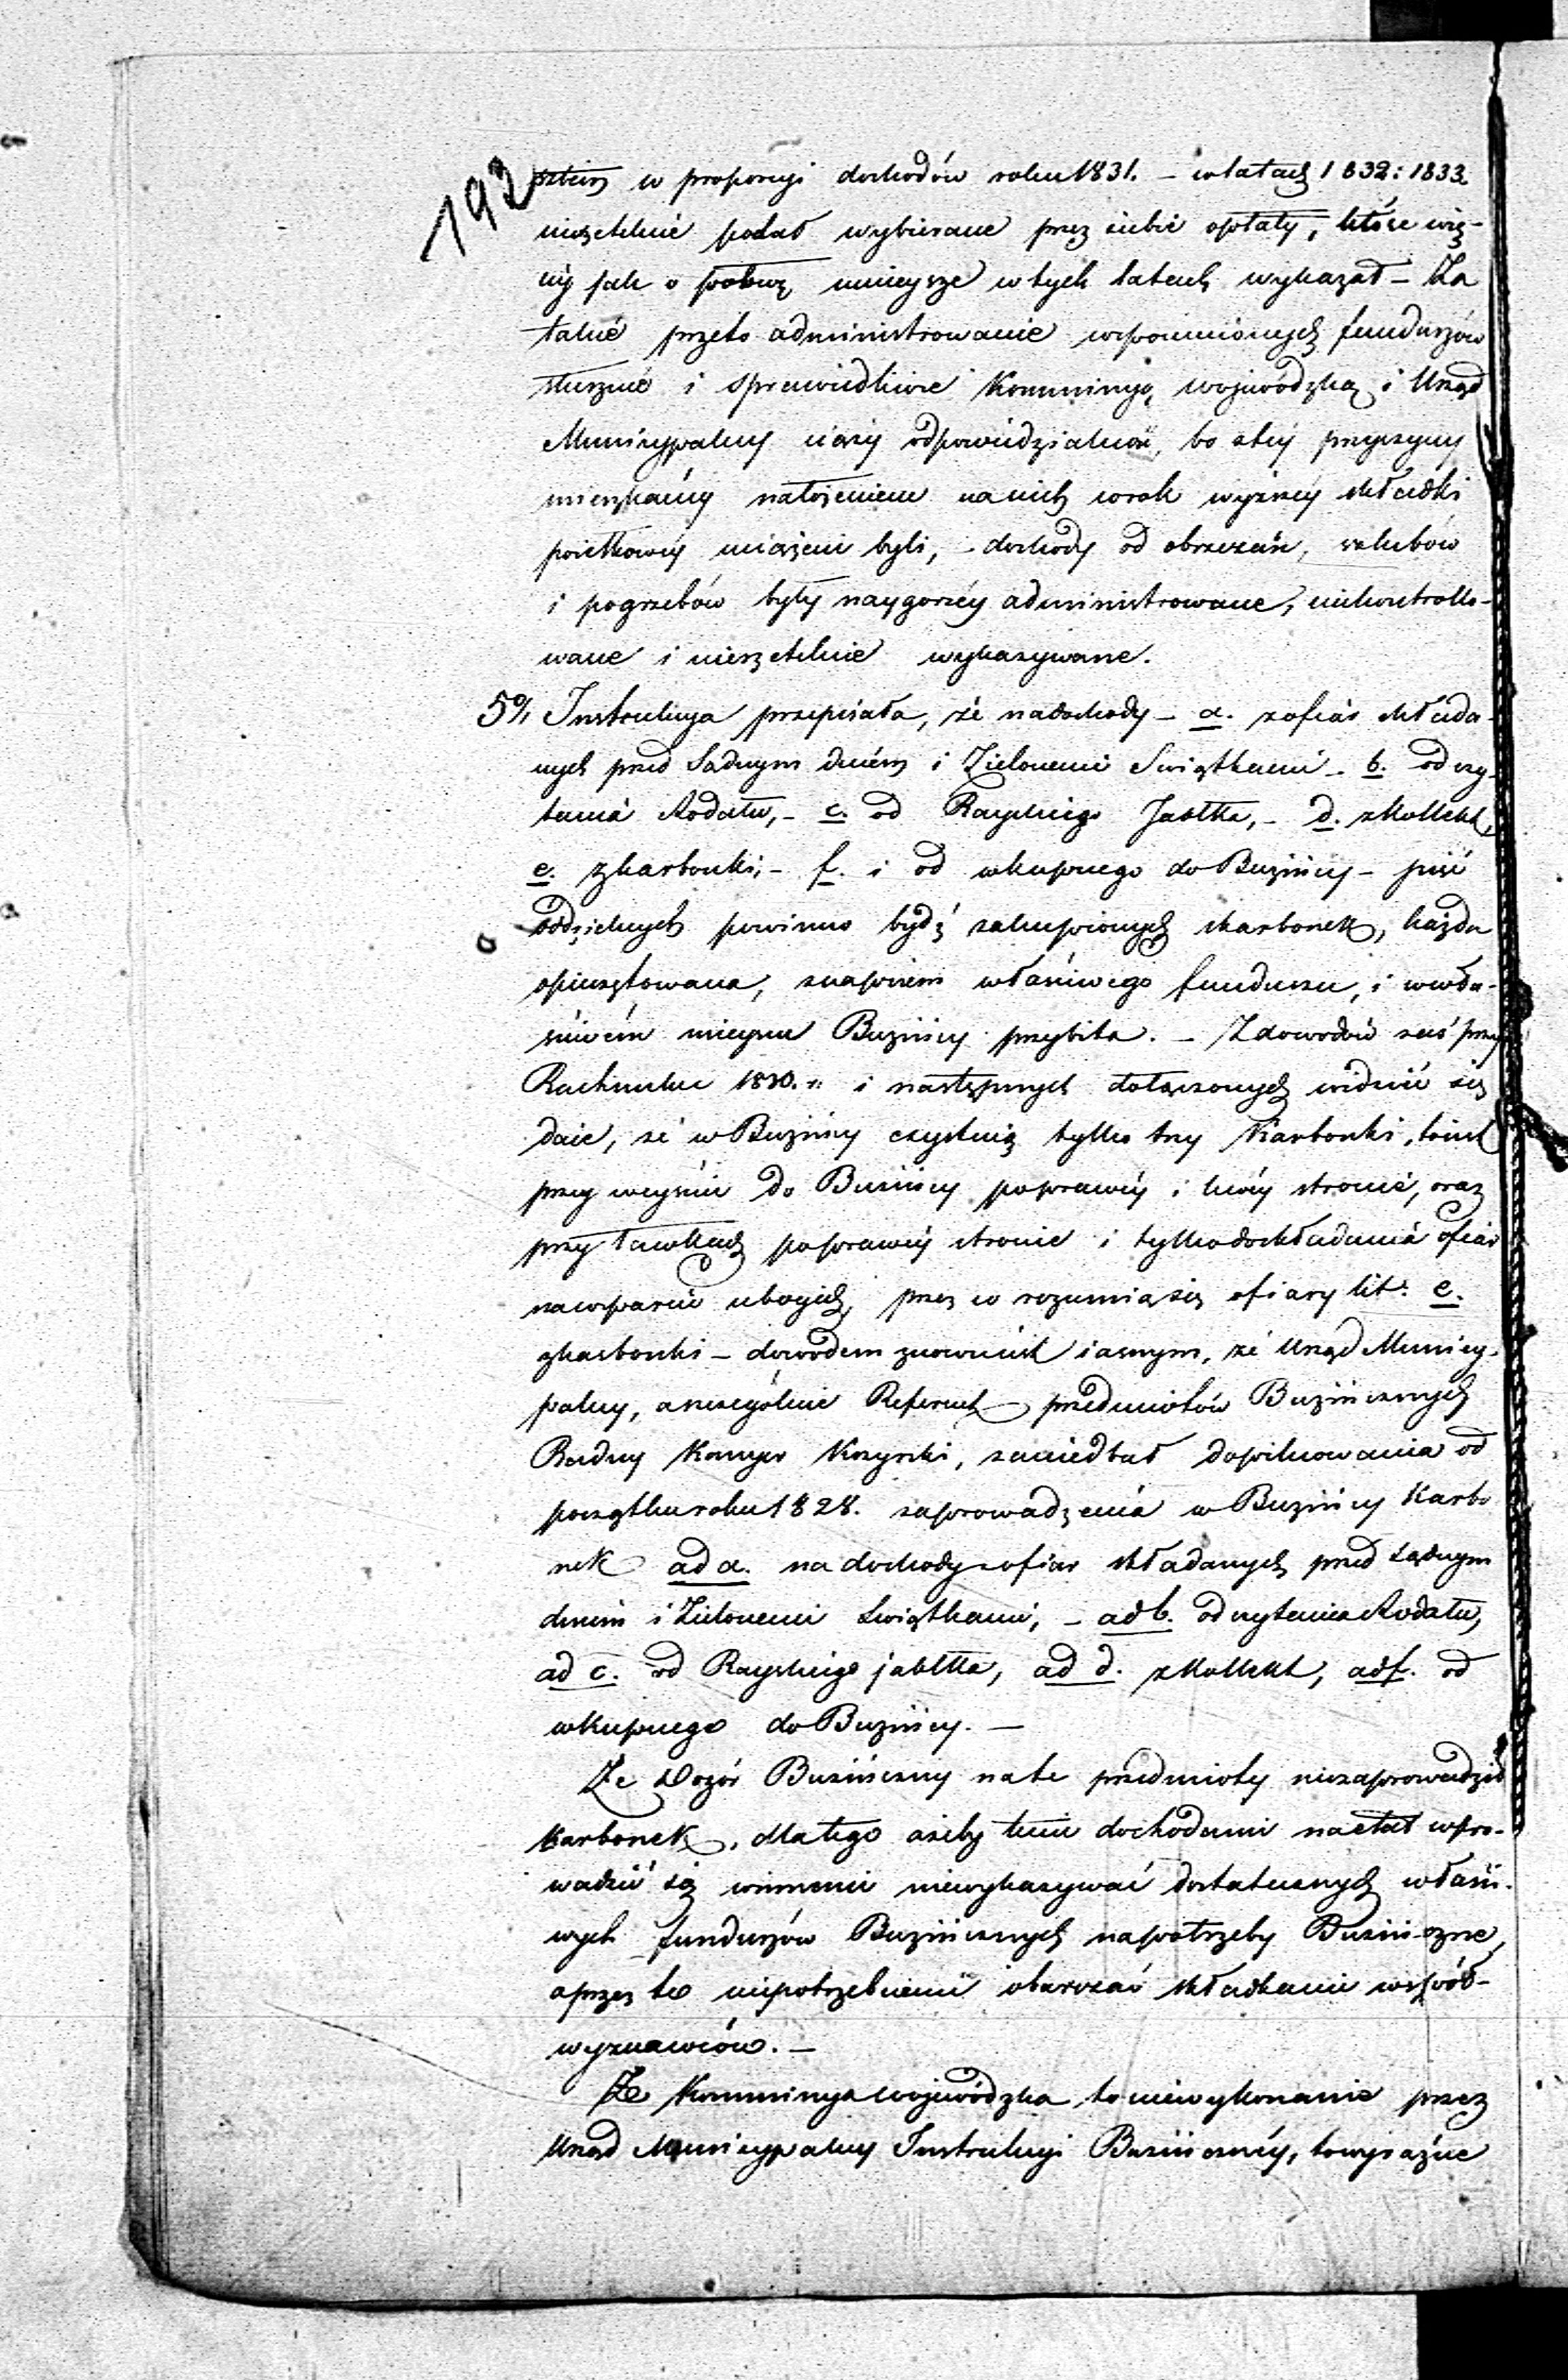 192
w proporcyi dochodów roku 1831. – w latach 1832: 1833.
nierzetelnie podał wybierane przez siebie opłaty, które wię-
cey jak o połowę mnieysze w tych latach wykazał – Za
takie przeto administrowanie wspomnionych funduszów
słusznie i sprawiedliwie Kommissyę Wojewódzką i Urząd
Municypalny ciąży odpowiedzialność, bo z tey przyczyny
mieszkańcy nałożeniem na nich corok wyższey składki
uciążeni byli, – dochody od obrzezań, szlubów
i pogrzebów były naygorzey administrowane, niekontrollo-
wane i nierzetelnie wykazywane.
5%, Instrukcya przepisała, że na dochody – a. z ofiar składa-
nych przed Sądnym dniem i Zielonemi Swiątkami – b. od czy-
tania Rodału, – c. od Rayskiego Jabłka, – d. z Kollekt,
e. z karbonki, – f. i od wkupnego do Bużnicy – pięć
oddzielnych powinno bydź zakupionych skarbonek, każda
opieczętowana, z napisem właściwego funduszu, i w wła-
ściwém mieyscu Bużnicy przybita. – Z dowodów zaś przy
Rachunku 1830. r. i następnych dołączonych widzieć się
daie, że w Bużnicy exystuią tylko trzy Karbonki, to iest
przy weyściu do Bużnicy po prawey i lewey stronie, oraz
przy ławkach po prawey stronie i tylko do składania ofiar
na wsparcie ubogich, przez co rozumią się ofiary lit: e.
z karbonki – dowodem znowu iest iasnym, że Urząd Municy-
palny, a szczególnie Referent przedmiotów Bużnicznych
Radny Kasper Kozyrski, zaniedbał dopilnowania od
początku roku 1828. zaprowadzenia w Bużnicy Karbo
nek ad a. na dochody z ofiar składanych przed Sądnym
dniem i Zielonemi Swiątkami, – ad b. od czytania Rodału,
ad c. od Rayskiego jabłka, ad d. z Kollekt, ad f. od
wkupnego do Bużnicy. –
Że Dozór Bużniczny na te przedmioty niezaprowadził
Karbonek, dlatego ażeby temi dochodami na etat wpro-
wadzić się winnemi niewykazywać dostatecznych właści-
wych funduszów Bużnicznych na potrzeby Bużniczne,
a przez to niepotrzebnemi obarczać składkami współ-
wyznawców. –
Że Kommissya Wojewódzka to niewykonanie przez
Urząd Municypalny Instrukcyi Bużniczney, to wyraźne